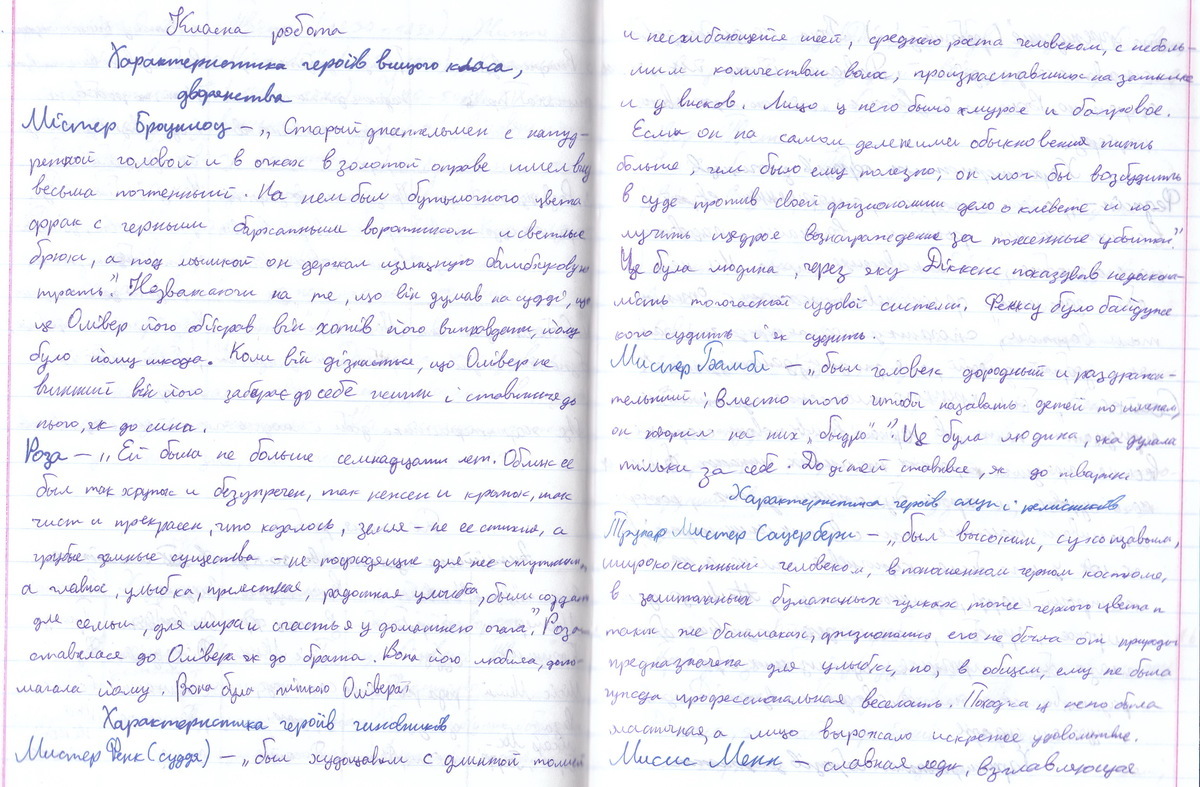 Класна робота
Характеристика героїв вищого класа,
дворянства
Містер Броунлоу – „Старый джентельмен с напуд-
ренной головой и в очках в золотой оправе имел вид
весьма почтенный. На нем был бутылочного цвета
фрак с черным бархатным воротником и светлые
брюки, а под мышкой он держал изящную бамбуковую
трость.” Незважаючи на те, що він думав на судді, що
це Олівер його обікрав він хотів його виправдати, йому
було йому шкода. Коли він дізнається, що Олівер не
винний він його забирає до себе жити і ставиться до
нього, як до сина.
Роза – „Ей была не больше семнадцати лет. Облик ее
был так хрупок и безупречен, так нежен и кроток, так
чист и прекрасен, что казалось, земля – не ее стихия, а
грубые земные существа – не подходящие для нее спутники,
а главное, улыбка, прелестная, радостная улыбка, были созданы
для семьи, для мира и счастья у домашнего очага.” Роза
ставилася до Олівера як до брата. Вона його любила, допо-
магала йому. Вона була тіткою Олівера.
Характеристика героїв чиновників
Мистер Фенк (суддя) – „был худощавым с длинной
и несгибающейся шеей, среднего роста человеком, с неболь-
шим количеством волос, произраставших на затылке
и у висков. Лицо у него было хмурое и багровое.
Если он на самом деле не имел обыкновения пить
больше, чем было ему полезно, он мог бы возбудить
в суде против своей физиономии дело о клевете и по-
лучить щедрое вознаграждение за понесенные убытки”.
Це була людина, через яку Діккенс показував недоскона-
лість тогочасної судової системи. Фенксу було байдуже
кого судить і як судить.
Мистер Бамбл – „был человек дородный и раздражи-
тельный; вместо того чтобы называть детей по имени,
он говорил на них „быдло””. Це була людина, яка думала
тільки за себе. До дітей ставився, як до тварин.
Характеристика героїв слуг і ремісників
Трунар Мистер Сауербери – „был высоким, сухощавым,
ширококостным человеком, в поношенном черном костюме,
в заштопанных бумажных чулках тоже черного цвета и
таких же башмаках; физиономия его не была от природы
предназначена для улыбки, но, в общем, ему не была
чужда профессиональная веселость. Походка у него была
эластичная, а лицо выражало искреннее удовольствие.
Мисис Менн – славная леди, взглавляющая